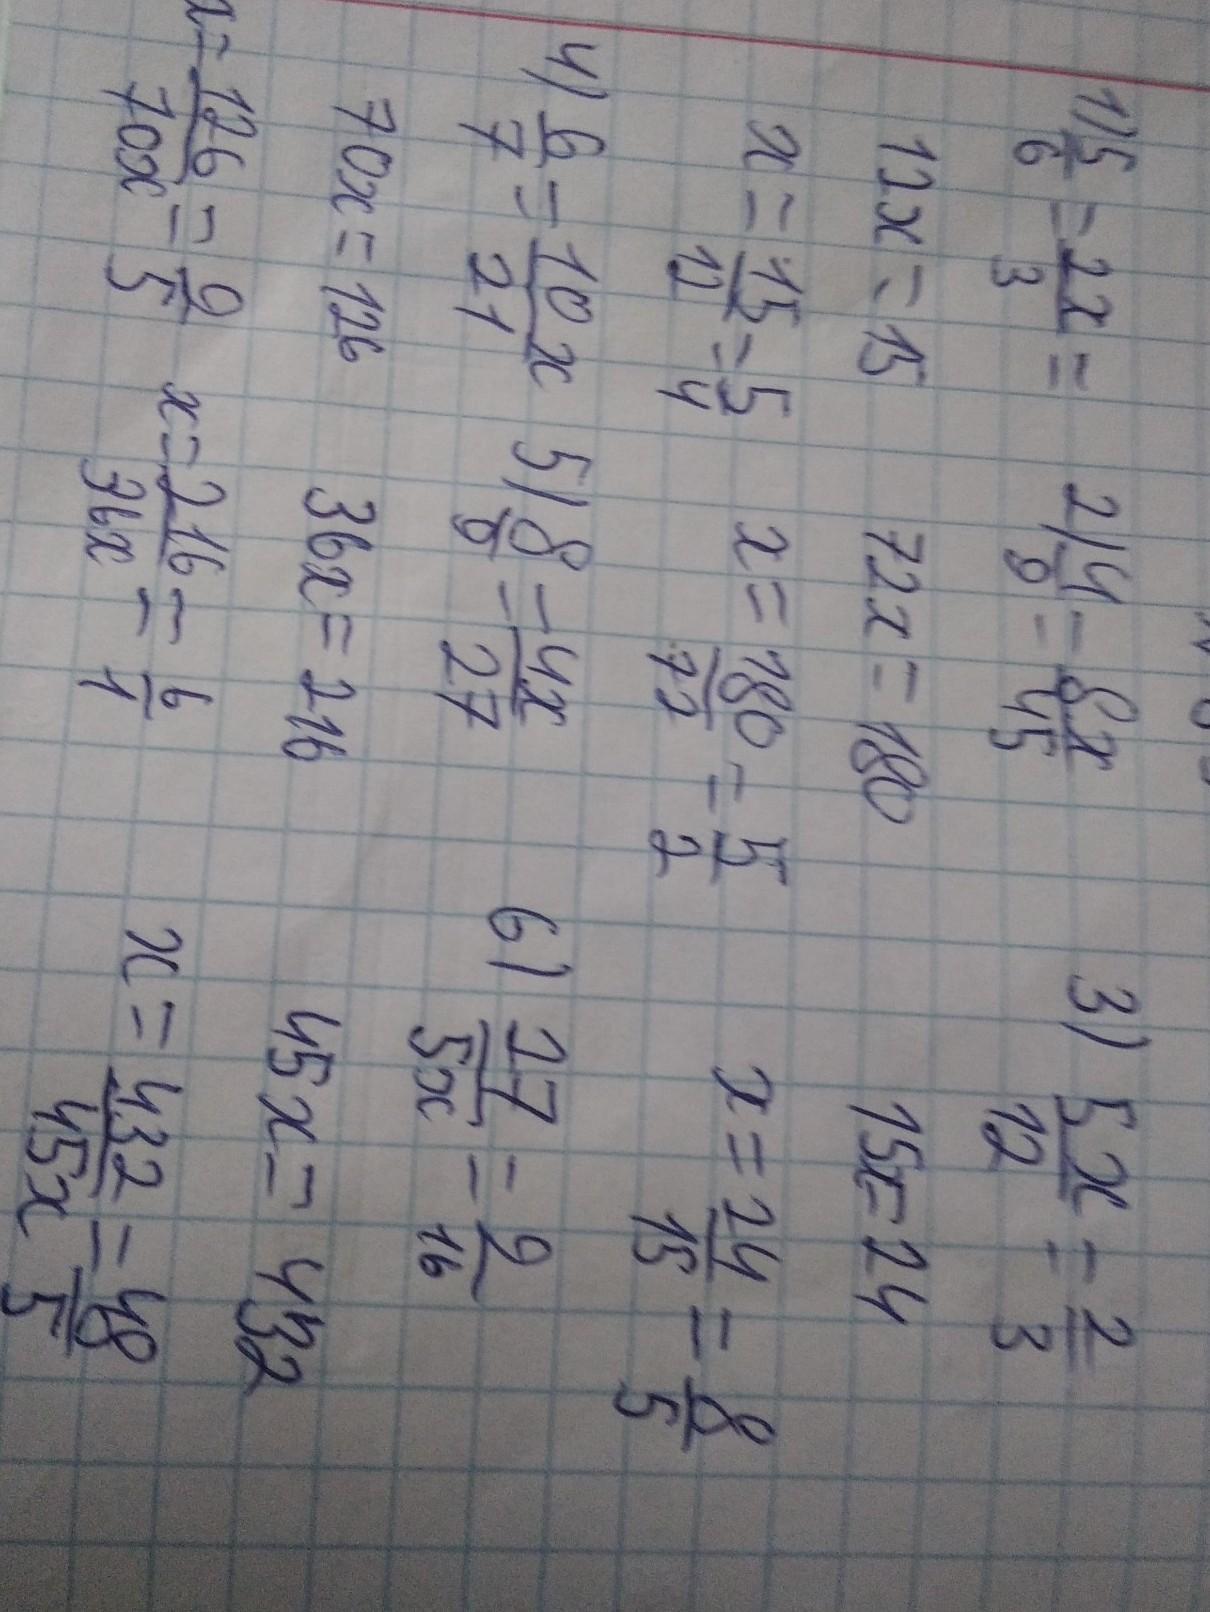 1) 5/6 = 2x/3 = 2) 4/9 = 8x/45 3) 5x/12 = 2/3
12x = 15 72x = 180 15x = 24
x = 15/12 = 5/4 x = 180/72 = 5/2 x = 24/15 = 8/5
4) 6/7 = 10x/21 5) 8/9 = 4x/27 6) 27/5x = 9/16
70x = 126 36x = 216 45x = 432
x = 126/70x = 9/5 x = 216/36x = 6/1 x = 432/45x = 48/5